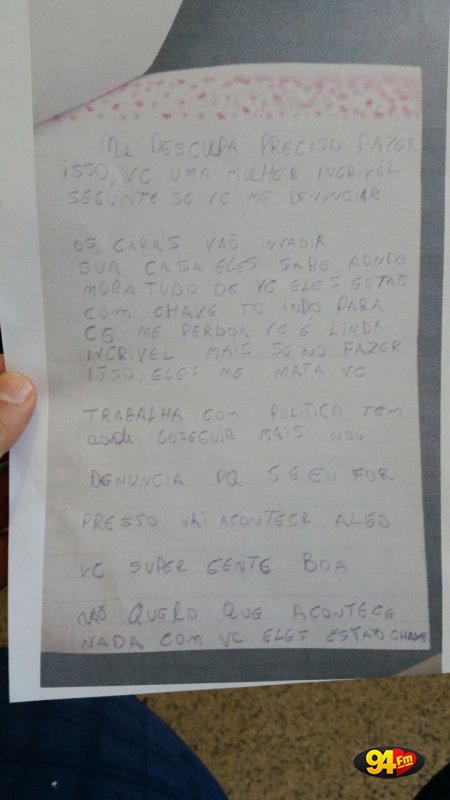 Me DESCULPA PRECISO FAZER
ISSO, VC UMA MULHER INCRIVEL
SEGUINTE SE VC ME DENUNCIAR
OS CARAS VÃO INVADIR
SUA CASA ELES SABE AONDE
MORA TUDO DE VC ELES ESTÃO
COM CHAVE TO INDO PARA
CG ME PERDOA VC E LINDA
INCRIVEL MAIS SE NO FAZER
ISSO, ELES ME MATA VC
TRABALHA COM POLITICO TEM
COSEGUIR MAIS NOU
DENUNCIA PQ SE EU FOR
PRESSO VAI ACONTECER ALGO
VC SUPER GENTE BOA
NÃO QUERO QUE ACONTECE
NADA COM VC ELES ESTÃO CHAVE
94 Fm